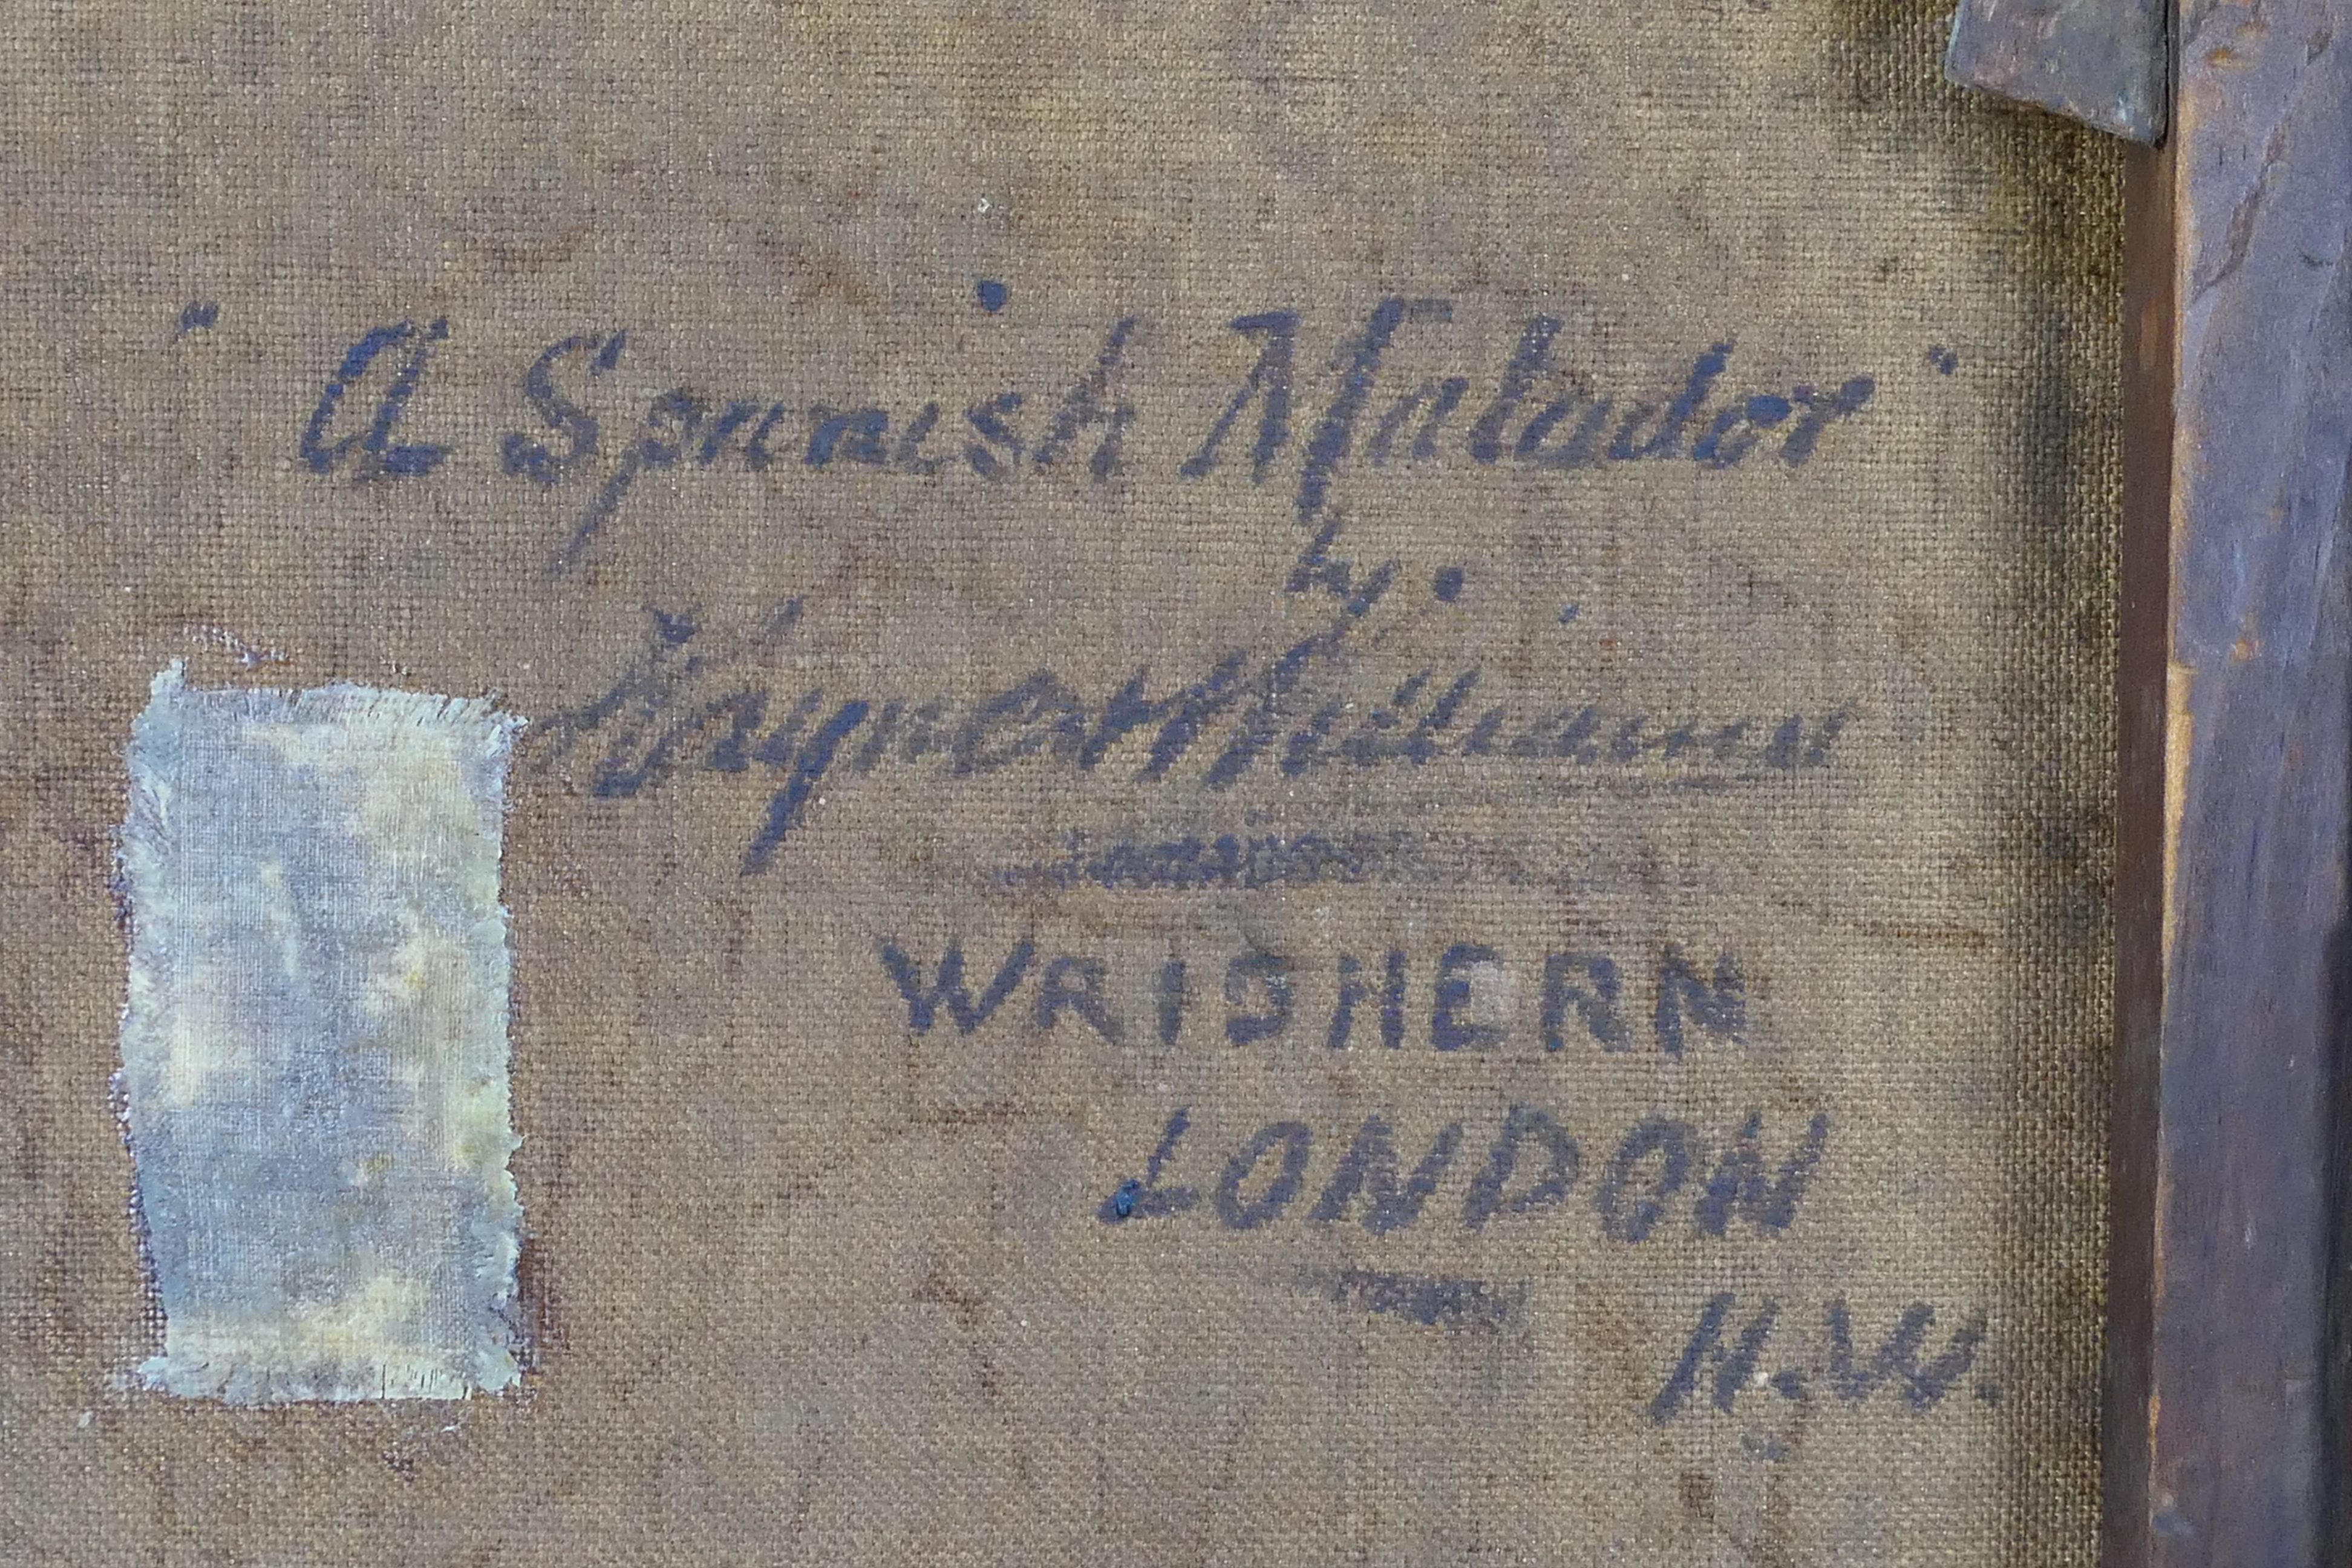 "A Spanish Matador"
by.
Haynes Williams
LONDON
N.W.